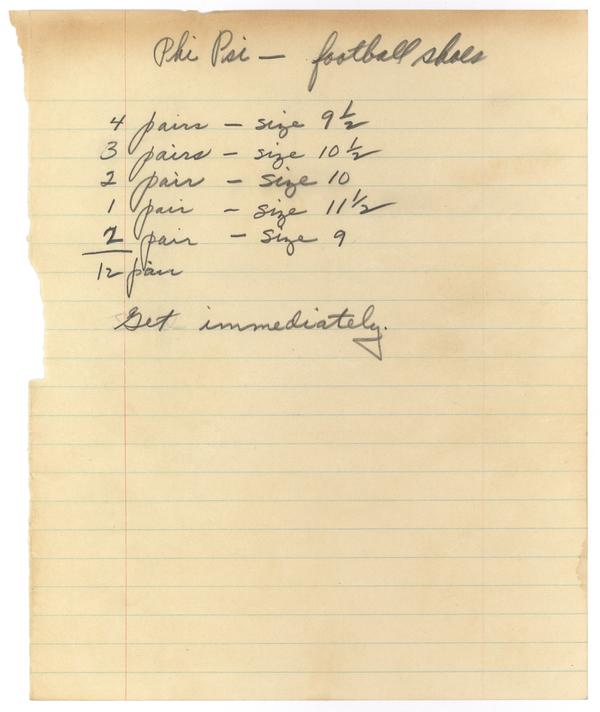 Phi Psi — football shoes
4 pairs — size 9 1/2
3 pairs — size 10 1/2
2 pair — size 10
1 pair — size 11 1/2
2 pair — size 9
12 pair
Get immediately.